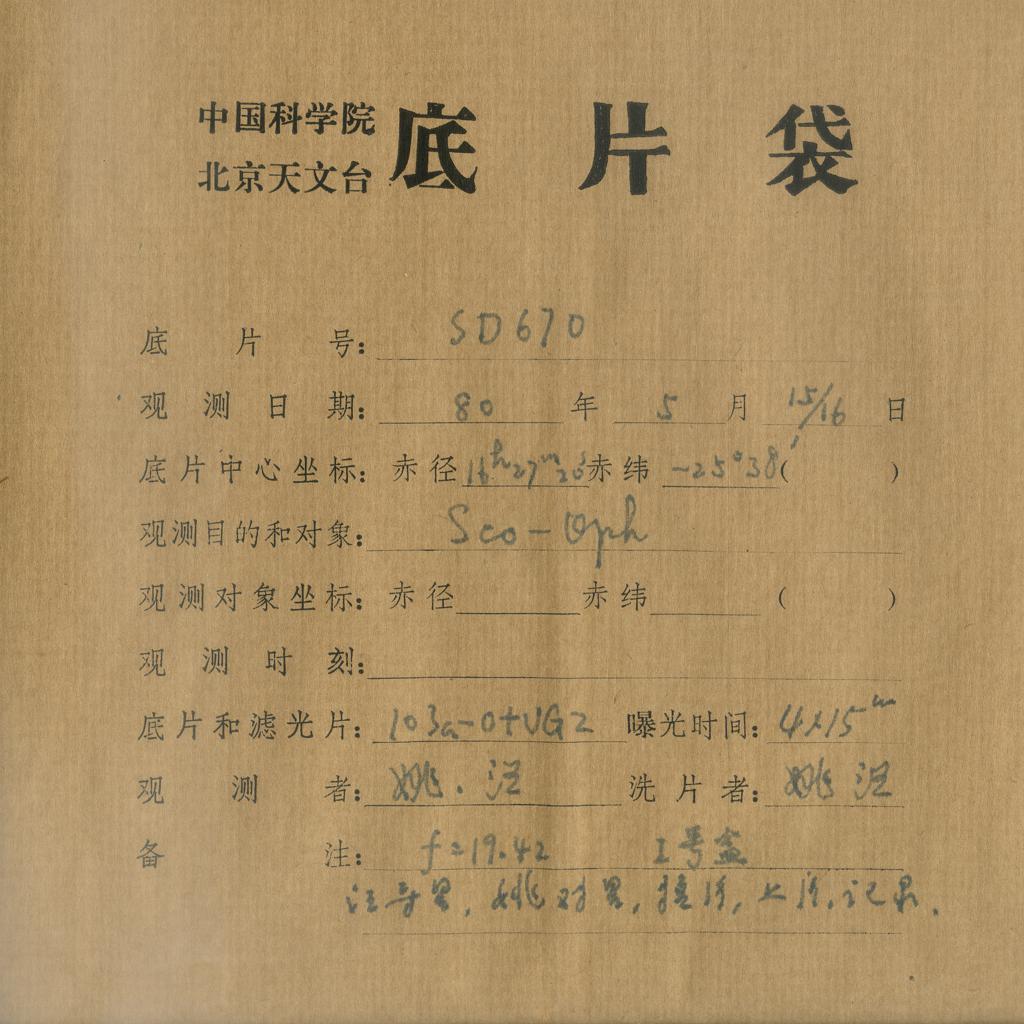 中国科学院
北京天文台
底片袋
底片号: SD670
观测日期: 80 年 5 月 15/16 日
底片中心坐标: 赤径 16h27m20s 赤纬 -25°38′ ( )
观测目的和对象: Sco-Oph
观测对象坐标: 赤径 赤纬 ( )
观测时刻:
底片和滤光片: 103a-O+UG2 曝光时间: 4×15m
观测者: 姚. 汪 洗片者: 姚 汪
备注: f=19.42 I号盒
汪导星, 姚对星, 记录.